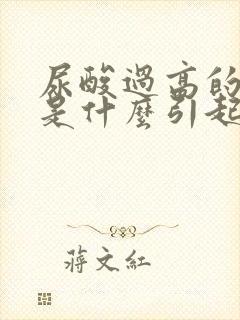 尿酸過高的
是什麼引起
蔣文紅